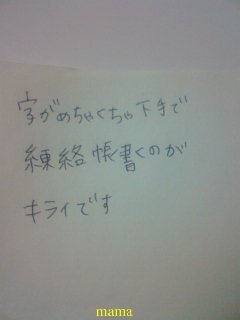 字がめちゃくちゃ下手で
練絡帳書くのが
キライです
mama